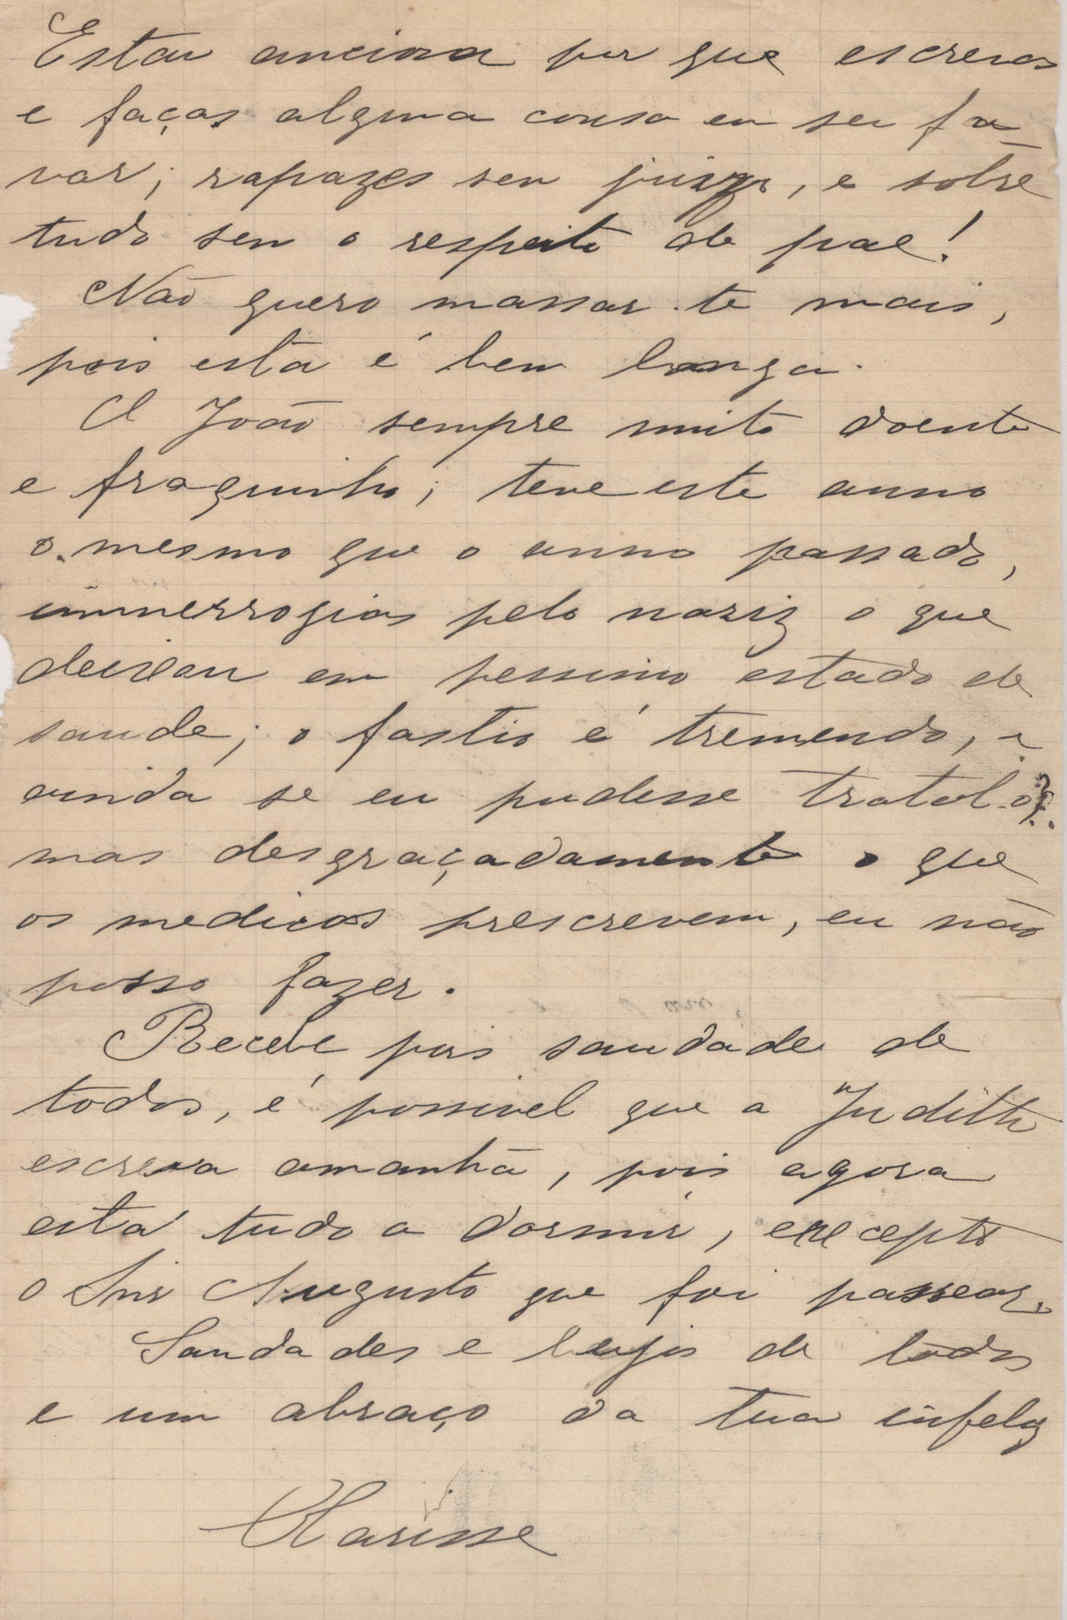 Estou anciosa por que escrevas
e faças alguma cousa em seu fa-
vor; rapazes sem juizo, e sobre
tudo sem o respeito de pae!
Não quero massar-te mais,
pois esta é bem longa.
O João sempre muito doente
e fraquinho; teve este anno
o mesmo que o anno passado,
immerrogias pelo nariz o que
deixou em pessimo estado de
saude; o fastio é tremendo, e
ainda se eu pudesse tratal-o?.
mas desgraçadamente o que
os medicos prescrevem, eu não
posso fazer.
Recebe pois saudade de
todos, é possivel que a Judith
escreva amanhã, pois agora
está tudo a dormir, excepto
o Snr Augusto que foi passear.
Saudades e beijos de todos
e um abraço da tua infeliz
Clarisse